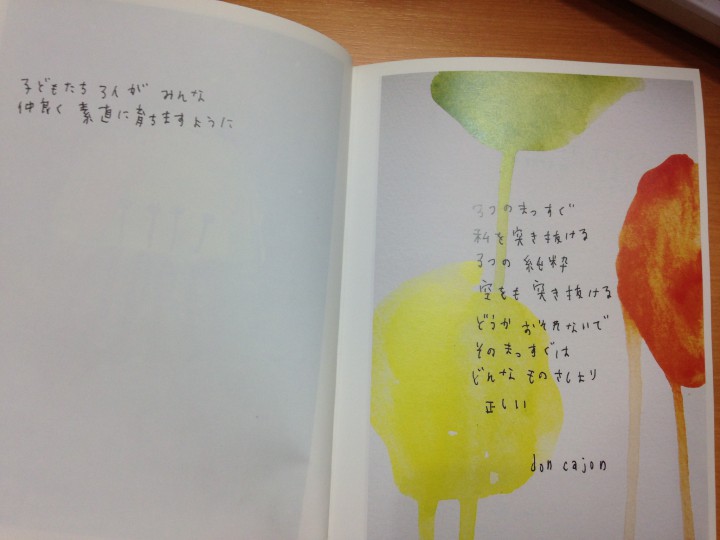 子どもたち 3人が みんな
仲良く 素直に育ちますように
3つのまっすぐ
私を突き抜ける
3つの 純粋
空をも 突き抜ける
どうか おそれないで
そのまっすぐは
どんな ものさしより
正しい
don cajon